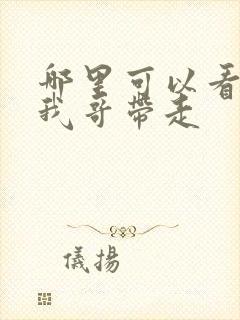 哪里可以看
我哥带走
儀揚